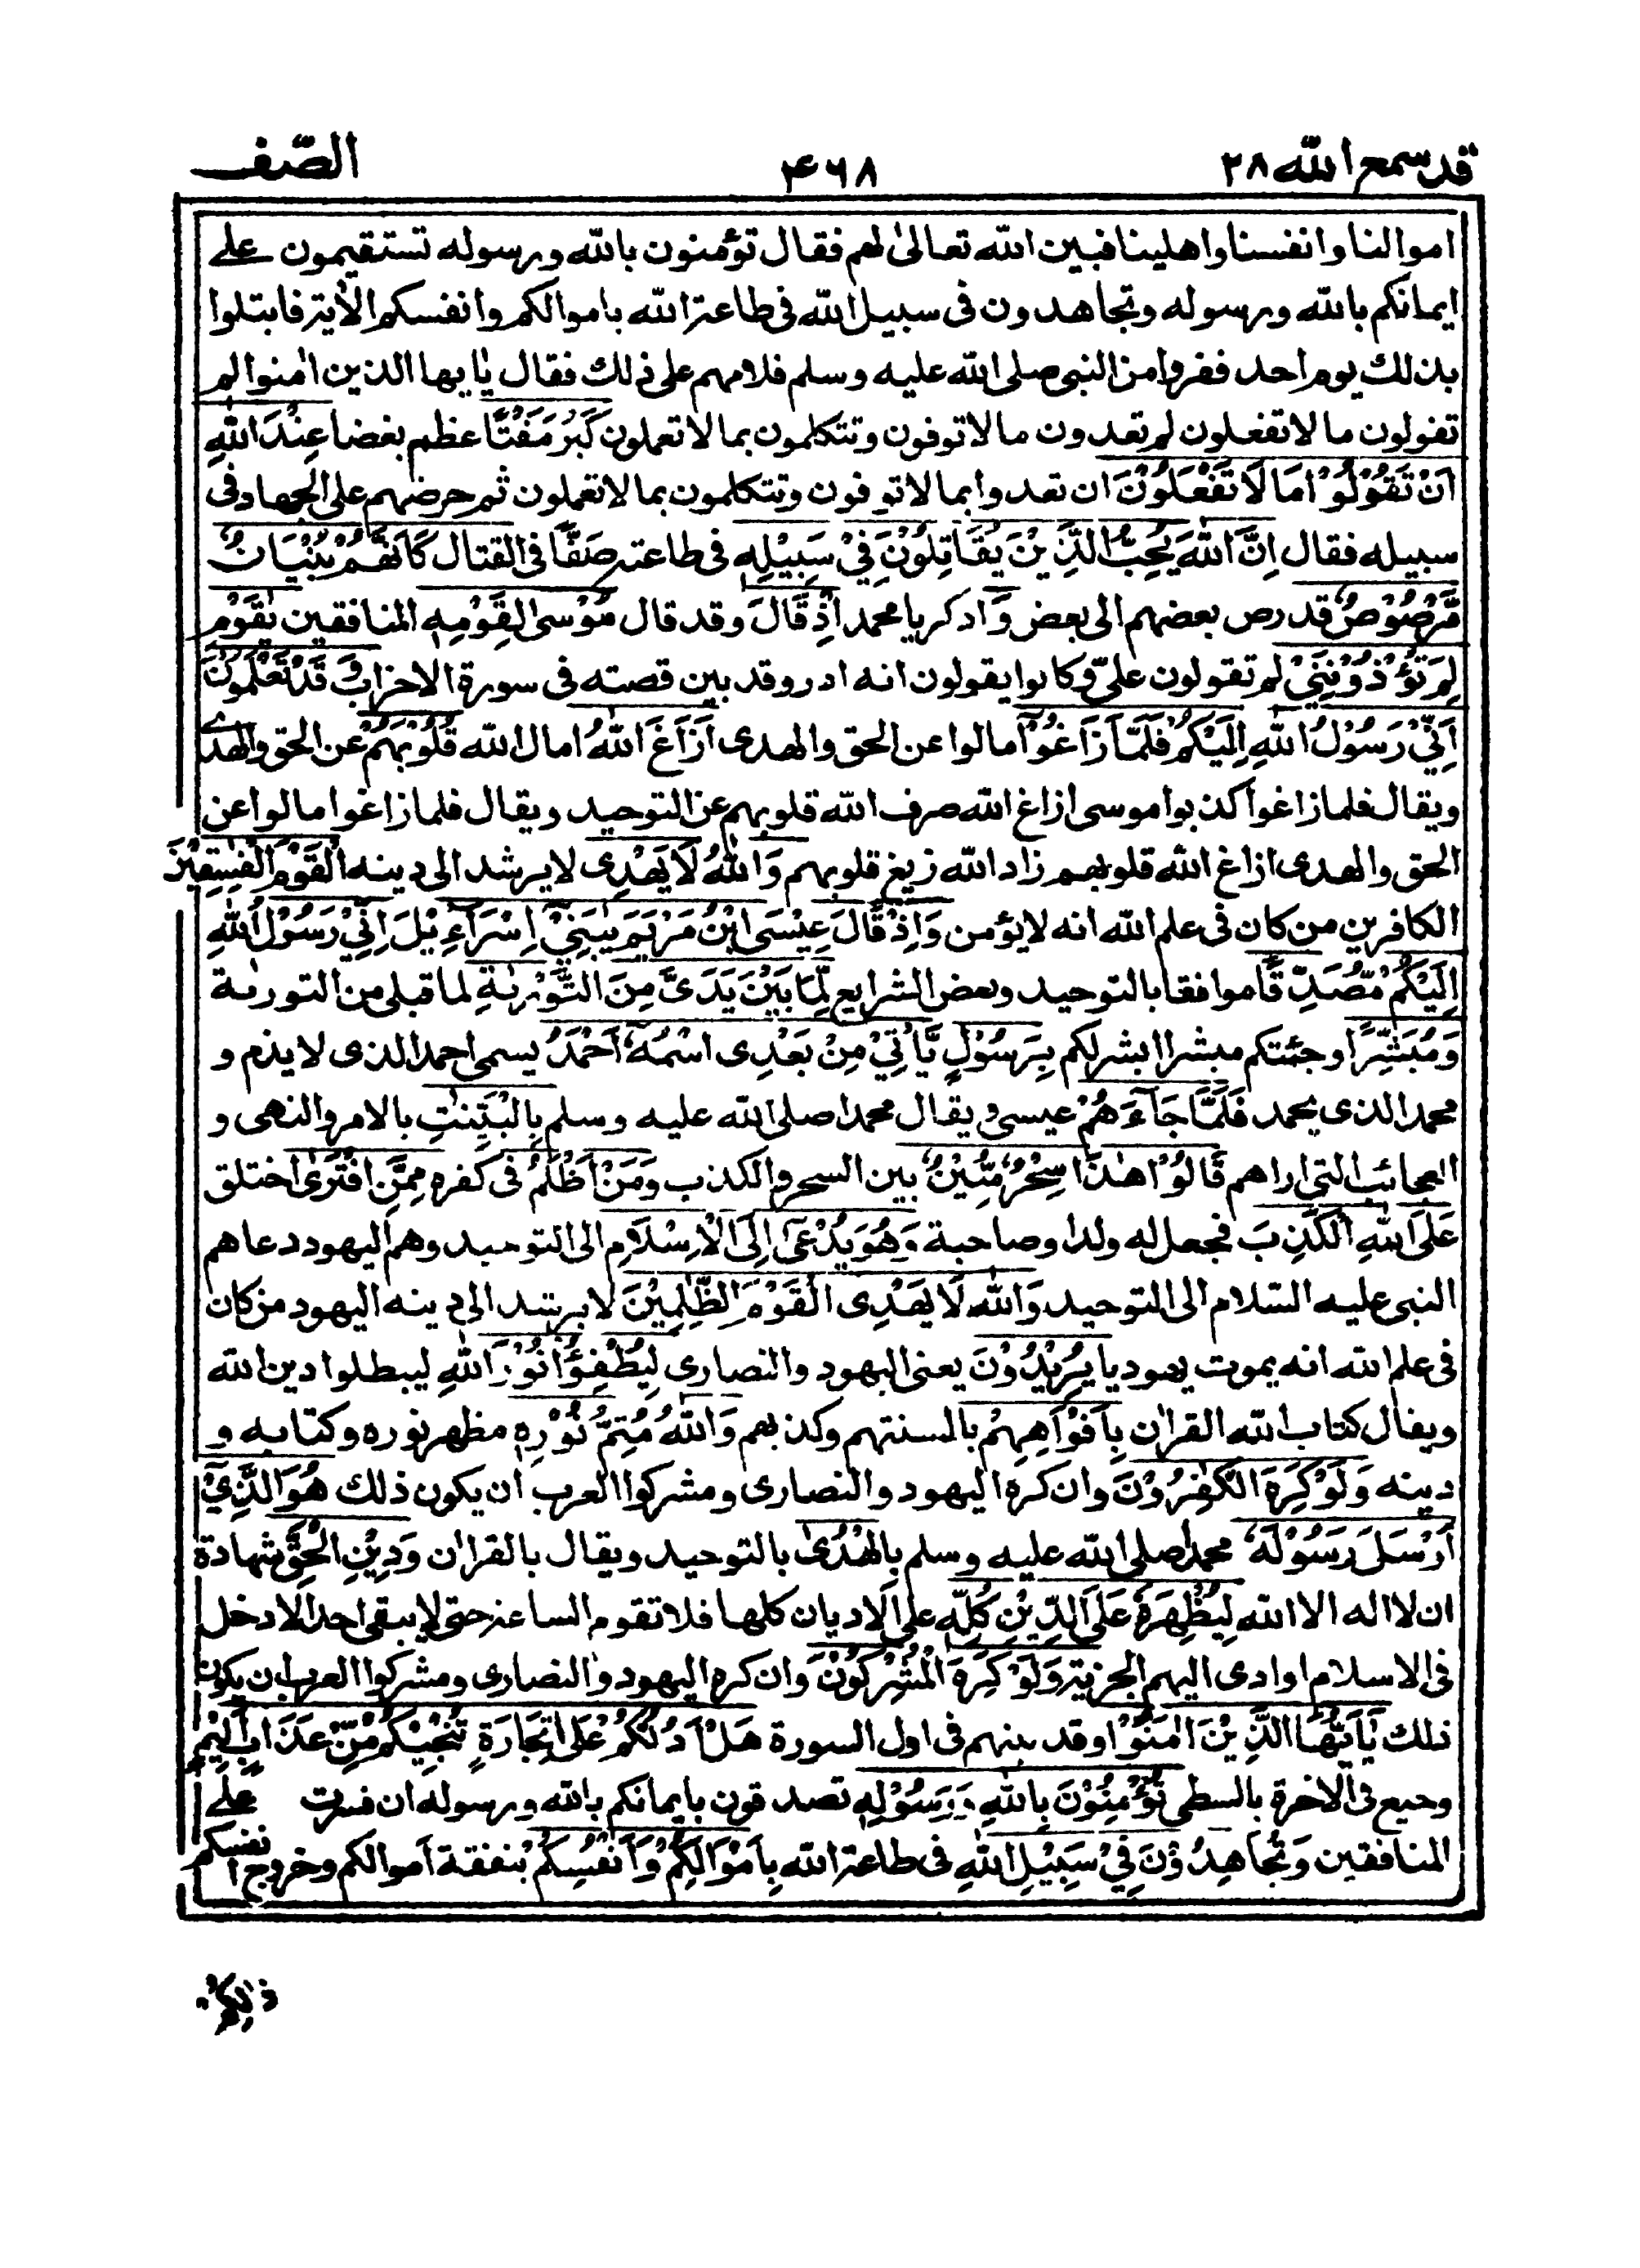 قد سمع الله ٢٨
۴۶۸
الصّف
اموالنا وانفسنا واهلينا فبين الله تعالىٰ لهم فقال تؤمنون بالله ورسوله تستقيمون علے
ايمانكم بالله ورسوله وتجاهدون فى سبيل الله فى طاعة الله باموالكم وانفسكم الاٰية فابتلوا
بذلك يوم احد ففروا من النبى صلى الله عليه وسلم فلامهم على ذلك فقال يٰايها الذين اٰمنوا لم
تقولون ما لا تفعلون لم تعدون ما لا توفون وتتكلمون بما لا تعملون كَبُرَ مَقْتًا عظم بغضا عِنْدَ اللّٰهِ
اَنْ تَقُوْلُوْا مَا لَا تَفْعَلُوْنَ ان تعدوا بما لا توفون وتتكلمون بما لا تعملون ثم حرضهم على الجهاد فى
سبيله فقال اِنَّ اللّٰهَ يُحِبُّ الَّذِيْنَ يُقَاتِلُوْنَ فِيْ سَبِيْلِهٖ فى طاعته صَفًّا فى القتال كَاَنَّهُمْ بُنْيَانٌ
مَّرْصُوْصٌ قد رص بعضهم الى بعض وَ اذكر يا محمد اِذْ قَالَ وقد قال مُوْسىٰ لِقَوْمِهٖ المنافقين يٰقَوْمِ
لِمَ تُؤْذُوْنَنِيْ لم تقولون علىّ وكانوا يقولون انه ادر وقد بين قصته فى سورة الاحزاب وَقَدْ تَّعْلَمُوْنَ
اَنِّيْ رَسُوْلُ اللّٰهِ اِلَيْكُمْ فَلَمَّا زَاغُوْٓا مالوا عن الحق والهدى اَزَاغَ اللّٰهُ امال الله قُلُوْبَهُمْ عن الحق والهدے
ويقال فلما زاغوا كذبوا موسى ازاغ الله صرف الله قلوبهم عن التوحيد ويقال فلما زاغوا مالوا عن
الحق والهدى ازاغ الله قلوبهم زاد الله زيغ قلوبهم وَاللّٰهُ لَا يَهْدِى لا يرشد الى دينه الْقَوْمَ الْفٰسِقِيْنَ
الكافرين من كان فى علم الله انه لا يؤمن وَاِذْ قَالَ عِيْسَى ابْنُ مَرْيَمَ يٰبَنِيْٓ اِسْرَآءِيْلَ اِنِّيْ رَسُوْلُ اللّٰهِ
اِلَيْكُمْ مُّصَدِّقًا موافقا بالتوحيد وبعض الشرايع لِّمَا بَيْنَ يَدَىَّ مِنَ التَّوْرٰىةِ لما قبلى من التورىة
وَمُبَشِّرًا وجئتكم مبشرا ابشركم بِرَسُوْلٍ يَّاْتِيْ مِنْ بَعْدِى اسْمُهٗٓ اَحْمَدُ يسمى احمد الذى لا يذم و
محمد الذى يحمد فَلَمَّا جَآءَهُمْ عيسىٰ ويقال محمدا صلى الله عليه وسلم بِالْبَيِّنٰتِ بالامر والنهى و
العجائب التى اراهم قَالُوْا هٰذَا سِحْرٌ مُّبِيْنٌ بين السحر والكذب وَمَنْ اَظْلَمُ فى كفره مِمَّنِ افْتَرٰى اختلق
عَلَى اللّٰهِ الْكَذِبَ فجعل له ولدا وصاحبة وَهُوَ يُدْعٰٓى اِلَى الْاِسْلَامِ الى التوحيد وهم اليهود دعاهم
النبى عليه السّلام الى التوحيد وَاللّٰهُ لَا يَهْدِى الْقَوْمَ الظّٰلِمِيْنَ لا يرشد الى دينه اليهود من كان
فى علم الله انه يموت يهوديا يُرِيْدُوْنَ يعنى اليهود والنصارى لِيُطْفِؤُا نُوْرَ اللّٰهِ ليبطلوا دين الله
ويقال كتاب الله القراٰن بِاَفْوَاهِهِمْ بالسنتهم وكذبهم وَاللّٰهُ مُتِمُّ نُوْرِهٖ مظهر نوره وكتابه و
دينه وَلَوْ كَرِهَ الْكٰفِرُوْنَ وان كره اليهود والنصارى ومشركوا العرب ان يكون ذلك هُوَ الَّذِيْٓ
اَرْسَلَ رَسُوْلَهٗ محمدا صلى الله عليه وسلم بِالْهُدٰى بالتوحيد ويقال بالقراٰن وَدِيْنِ الْحَقِّ شهادة
ان لا اله الا الله لِيُظْهِرَهٗ عَلَى الدِّيْنِ كُلِّهٖ على الاديان كلها فلا تقوم الساعة حتى لا يبقى احد الا دخل
فى الاسلام او ادى اليهم الجزية وَلَوْ كَرِهَ الْمُشْرِكُوْنَ وان كره اليهود والنصارى ومشركوا العرب ان يكون
ذلك يٰٓاَيُّهَا الَّذِيْنَ اٰمَنُوْا وقد بينهم فى اول السورة هَلْ اَدُلُّكُمْ عَلٰى تِجَارَةٍ تُنْجِيْكُمْ مِّنْ عَذَابٍ اَلِيْمٍ
وجيع فى الاٰخرة تُؤْمِنُوْنَ بِاللّٰهِ وَرَسُوْلِهٖ تصدقون بايمانكم بالله ورسوله ان فسرت علے
المنافقين وَتُجَاهِدُوْنَ فِيْ سَبِيْلِ اللّٰهِ فى طاعة الله بِاَمْوَالِكُمْ وَاَنْفُسِكُمْ بنفقة اموالكم وخروج انفسكم
ذٰلِكُمْ